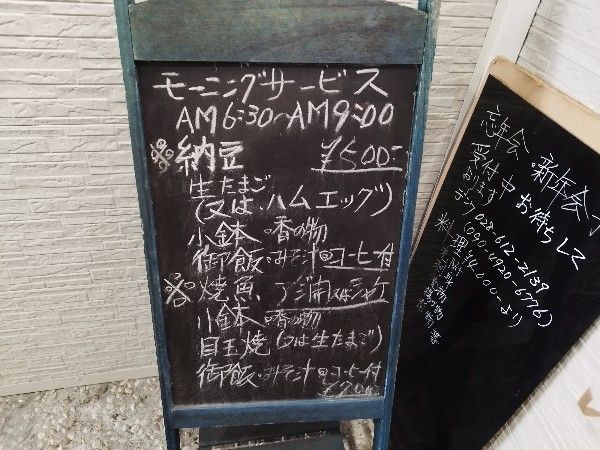 モーニングサービス
AM6:30〜AM9:00
※納豆 ¥500-
生たまご
(又は、ハムエッグ)
小鉢・香の物
御飯・みそ汁・コーヒー付
※焼魚 アジ開又はシャケ
小鉢・香の物
目玉焼(又は生たまご)
御飯・みそ汁・コーヒー付
忘年会・新年会
受付中
おります
お待ちして
028-612-2139
料理¥4,000-より